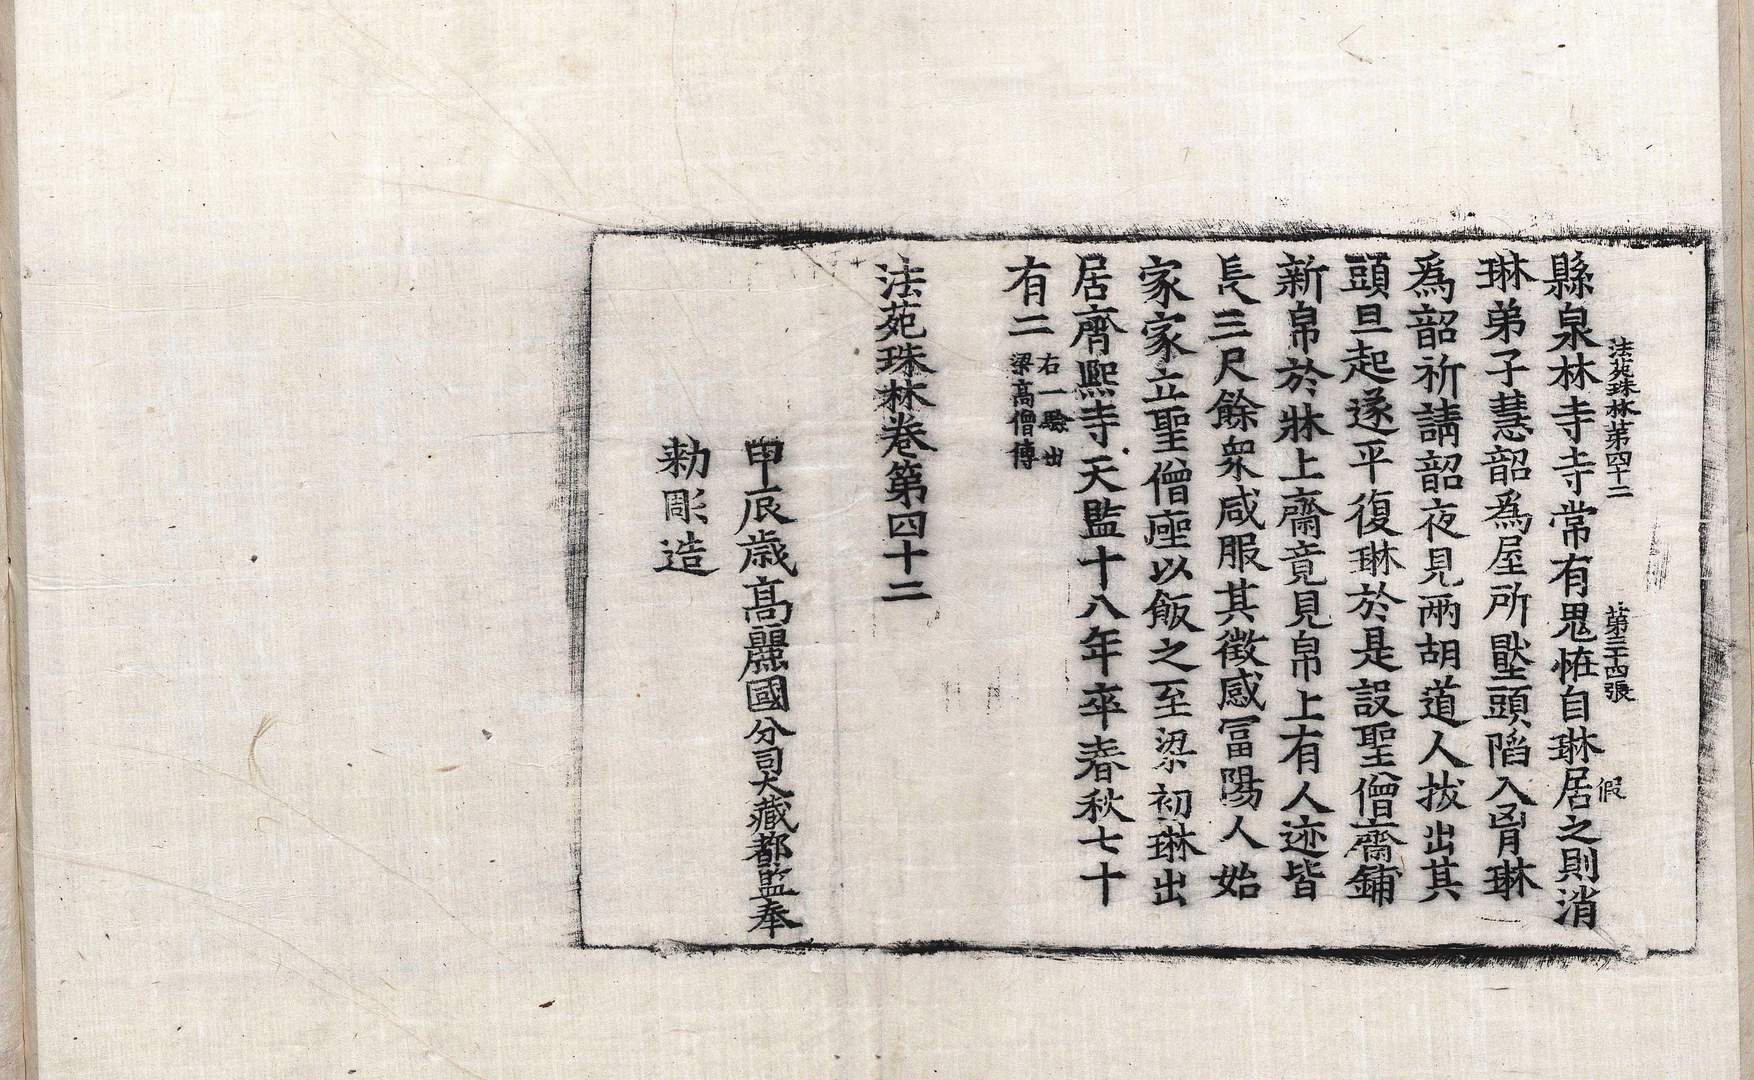 法苑珠林第四十二 第三十四張 假
縣泉林寺寺常有鬼恠自琳居之則消
琳弟子慧韶爲屋所壓頭陷入胷琳
爲韶祈請韶夜見兩胡道人拔出其
頭旦起遂平復琳於是設聖僧齋鋪
新帛於牀上齋竟見帛上有人迹皆
長三尺餘衆咸服其徵感冨陽人始
家家立聖僧座以飯之至梁初琳出
居齊熙寺天監十八年卒春秋七十
有二
右一驗出
梁高僧傳
法苑珠林卷第四十二
甲辰歳高麗國分司大藏都監奉
勅彫造